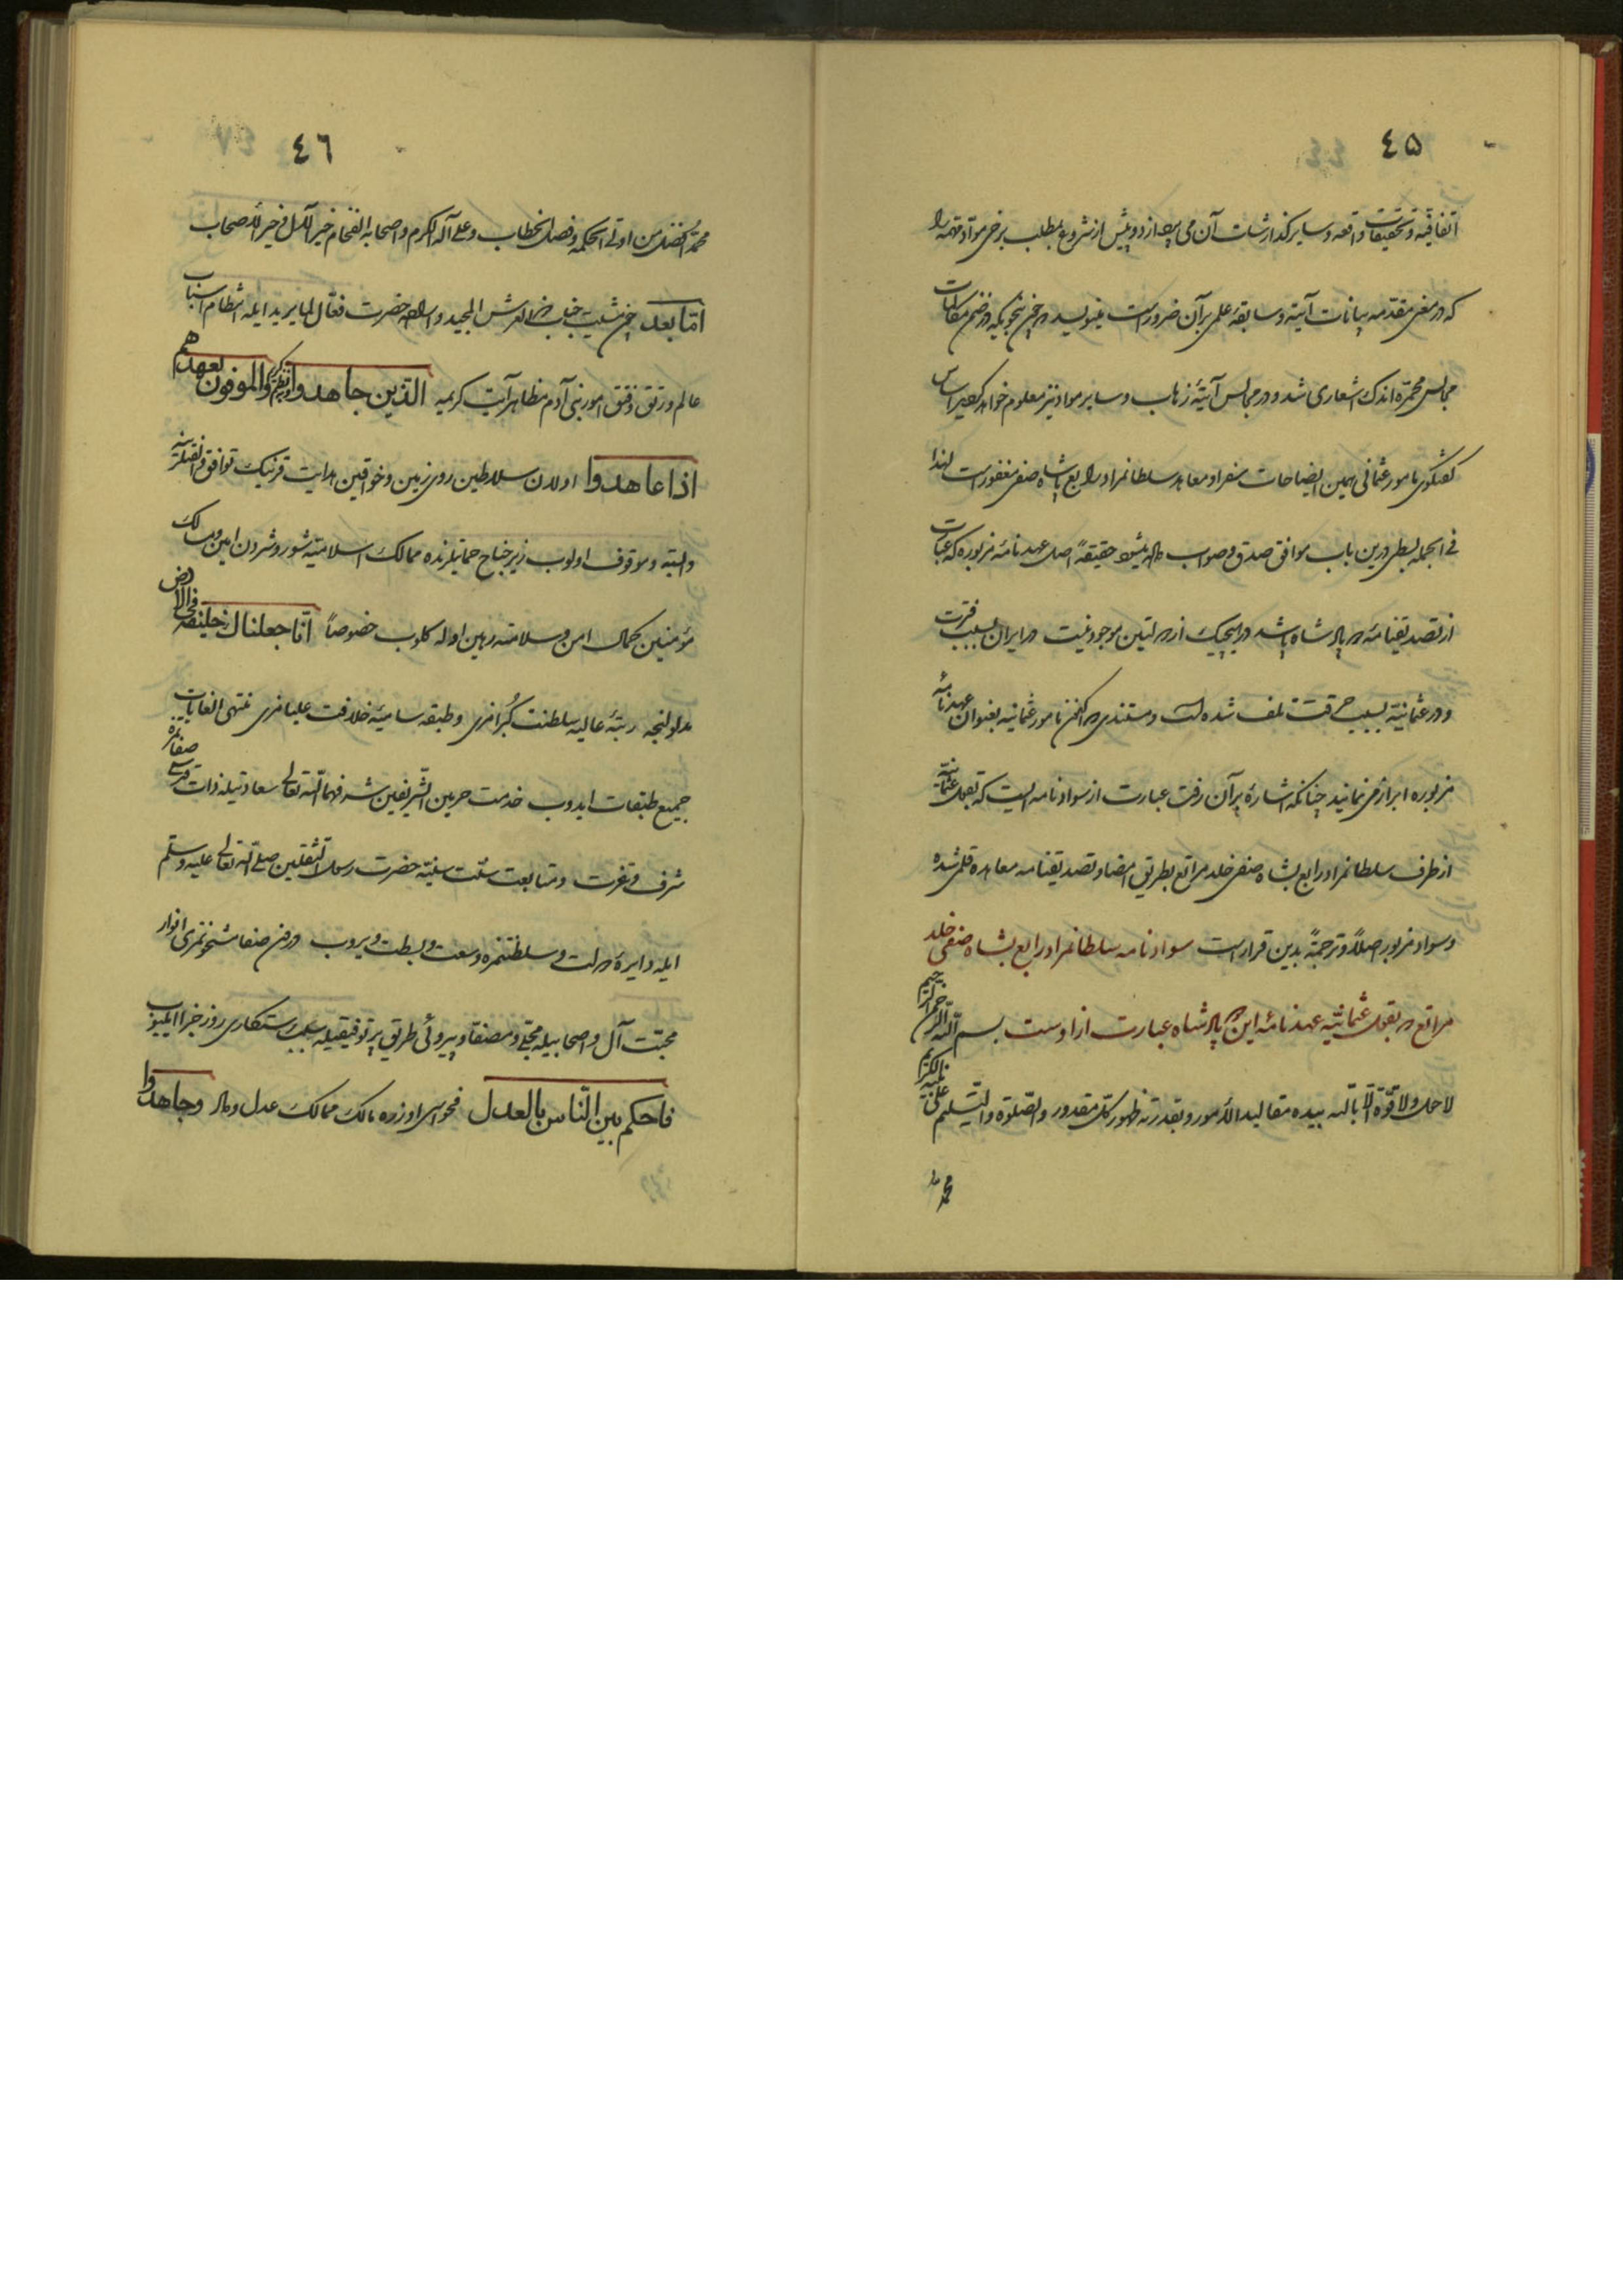 ٤۵
اتفاقیه و تحقیقات واقعه و سایر گذارشات آن می‌پردازد و پیش از شروع بمطلب برخی مواد مهمه را
که در معنی مقدمه بیانات آتیه و سابقه علمی بر آن ضرور است مینویسد در ضمن مقالات
مجالس محمره اندک اشعاری شد و در مجالس آتیهٔ زهاب و سایر مواد نیز معلوم خواهد اساس
گفتگوی مامور عثمانی همین ایضاحات سفرا و معاهده سلطانمراد رابع با شاه صفی مغفور است لهذا
فی الجمله بسطی درین باب موافق صدق و صواب داده میشود حقیقةً اصل عهدنامهٔ مزبوره که عبارت
از تصدیقنامهٔ دو پادشاه باشد در هیچیک از دولتین موجود نیست در ایران بسبب فترت
و در عثمانیه بسبب حرقت تلف شده است و مستندی که اکنون مامور عثمانیه بعنوان عهدنامهٔ
مزبوره ابراز می‌نمایند چنانکه اشارهٔ بر آن رفت عبارت از سواد نامه ایست که بقول عثمانیه
از طرف سلطانمراد رابع بشاه صفی خلد مراتع بطریق امضا و تصدیقنامه معاهده قلمی شده
و سواد مزبور اصلاً و ترجمةً بدین قرار است سواد نامه سلطانمراد رابع بشاه صفی خلد
مراتع که بقول عثمانیه عهدنامهٔ این دو پادشاه عبارت از اوست بسم الله الرحمن الرحیم
لا حول و لا قوة الا بالله بیده مقالید الأمور و بقدرته ظهور کل مقدور و الصلوة و التسلیم علی نبیه الکریم
محمد
٤٦
محمد افضل من اوتی الحکمه و فصل الخطاب و علی آله الکرام و اصحابه الفخام خیر الآل و خیر الأصحاب
اما بعد چون مشیت جناب ذی العرش المجید و ارادهٔ حضرت فعال لما یرید ایله انتظام اسباب
عالم و رتق و فتق امور بنی آدم مظاهر آیت کریمه الذین جاهدوا و الموفون بعهدهم
اذا عاهدوا اولان سلاطین روی زمین و خواقین هدایت قرینک توافق
وابسته و موقوف اولوب زیر جناح حمایتلرنده ممالک اسلامیه شور و شردن امین و مسالک
مؤمنین کمال امن و سلامته رهین اوله کلوب خصوصاً انا جعلناک خلیفة فی الارض
مدلولنجه رتبهٔ عالیه سلطنت کبرامزی و طبقه سامیهٔ خلافت علیامزی منتهی الغایات
جمیع طبقات ایدوب خدمت حرمین الشریفین شرفهما الله تعالی سعادتیله ذات
شرف و عزت و متابعت سنت سنیه حضرت رسول الثقلین صلی الله تعالی علیه و سلم
ایله دایرهٔ دولت و سلطنتمزه وسعت و بسطت ویروب انوار
محبت آل و اصحابیله مجلی و مصفا و پیروئی طریق پر توفیقیله رستکاری روز جزا ایلیوب
فاحکم بین الناس بالعدل فحواسی اوزره مالک ممالک عدل و داد و جاهدوا